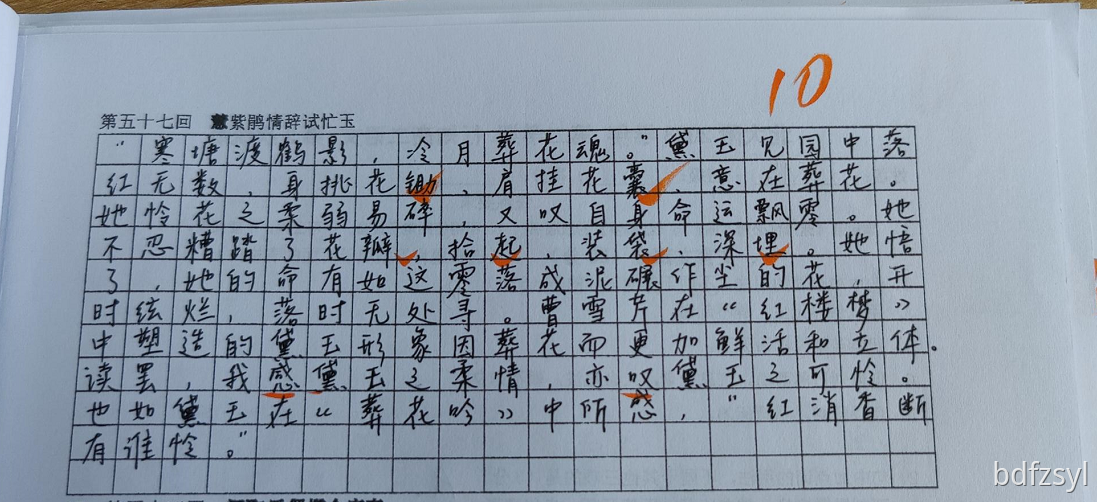 10
第五十七回 慧紫鹃情辞试忙玉
“寒塘渡鹤影，冷月葬花魂。”黛玉见园中落
红无数，身挑花锄，肩挂花囊，意在葬花。
她怜花之柔弱易碎，又叹自身命运飘零。她
不忍糟踏了花瓣，拾起，装袋，深埋。她悟
了，她的命有如这零落成泥碾作尘的花，开
时炫烂，落时无处寻。曹雪芹在“红楼梦》
中塑造的黛玉形象因葬花而更加鲜活和立体。
读罢，我感黛玉之柔情，亦叹黛玉之可怜。
也如黛玉在《葬花吟》中所感，“红消香断
有谁怜。”
bdfzsyl